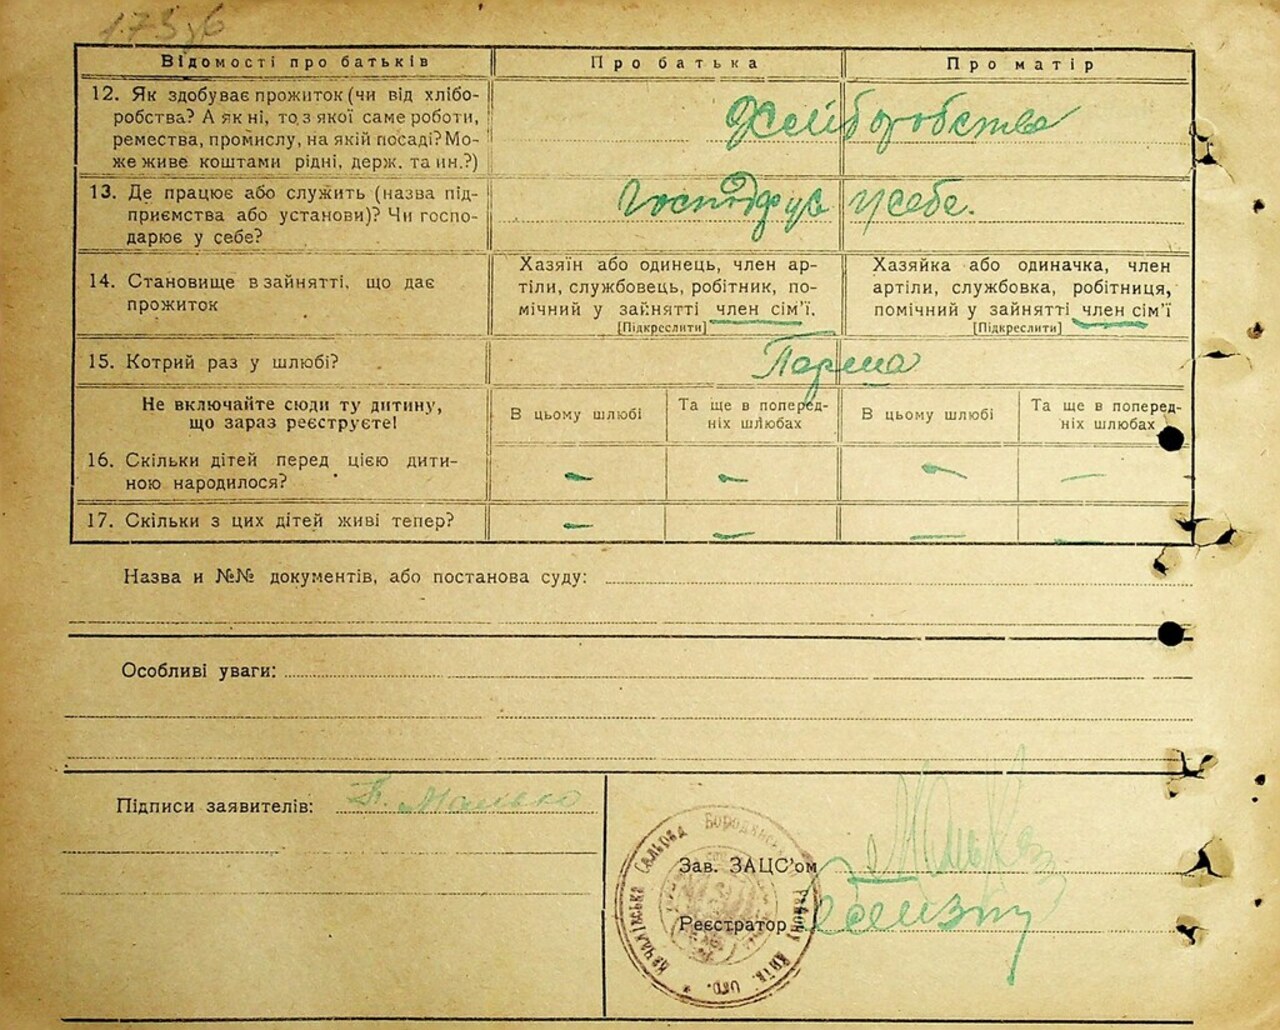 173зб
Відомості про батьків
Про батька
Про матір
12. Як здобуває прожиток (чи від хлібо-
робства? А як ні, то, з якої саме роботи,
ремества, промислу, на якій посаді? Мо-
же живе коштами рідні, держ. та ин.?)
Хліборобства
13. Де працює або служить (назва під-
приємства або установи)? Чи госпо-
дарює у себе?
Господарує у себе.
14. Становище в зайнятті, що дає
прожиток
Хазяїн або одинець, член ар-
тілі, службовець, робітник, по-
мічний у зайнятті член сім'ї.
[Підкреслити]
Хазяйка або одиначка, член
артілі, службовка, робітниця,
помічний у зайнятті член сім'ї
[Підкреслити]
15. Котрий раз у шлюбі?
Перша
Не включайте сюди ту дитину,
що зараз реєструєте!
В цьому шлюбі
Та ще в поперед-
ніх шлюбах
В цьому шлюбі
Та ще в поперед-
ніх шлюбах
16. Скільки дітей перед цією дити-
ною народилося?
- - - -
17. Скільки з цих дітей живі тепер?
- - - -
Назва и №№ документів, або постанова суду:
Особливі уваги:
Підписи заявителів:
Зав. ЗАЦС'ом
Реєстратор
Сільрада Бородянськ району Київ. окр.